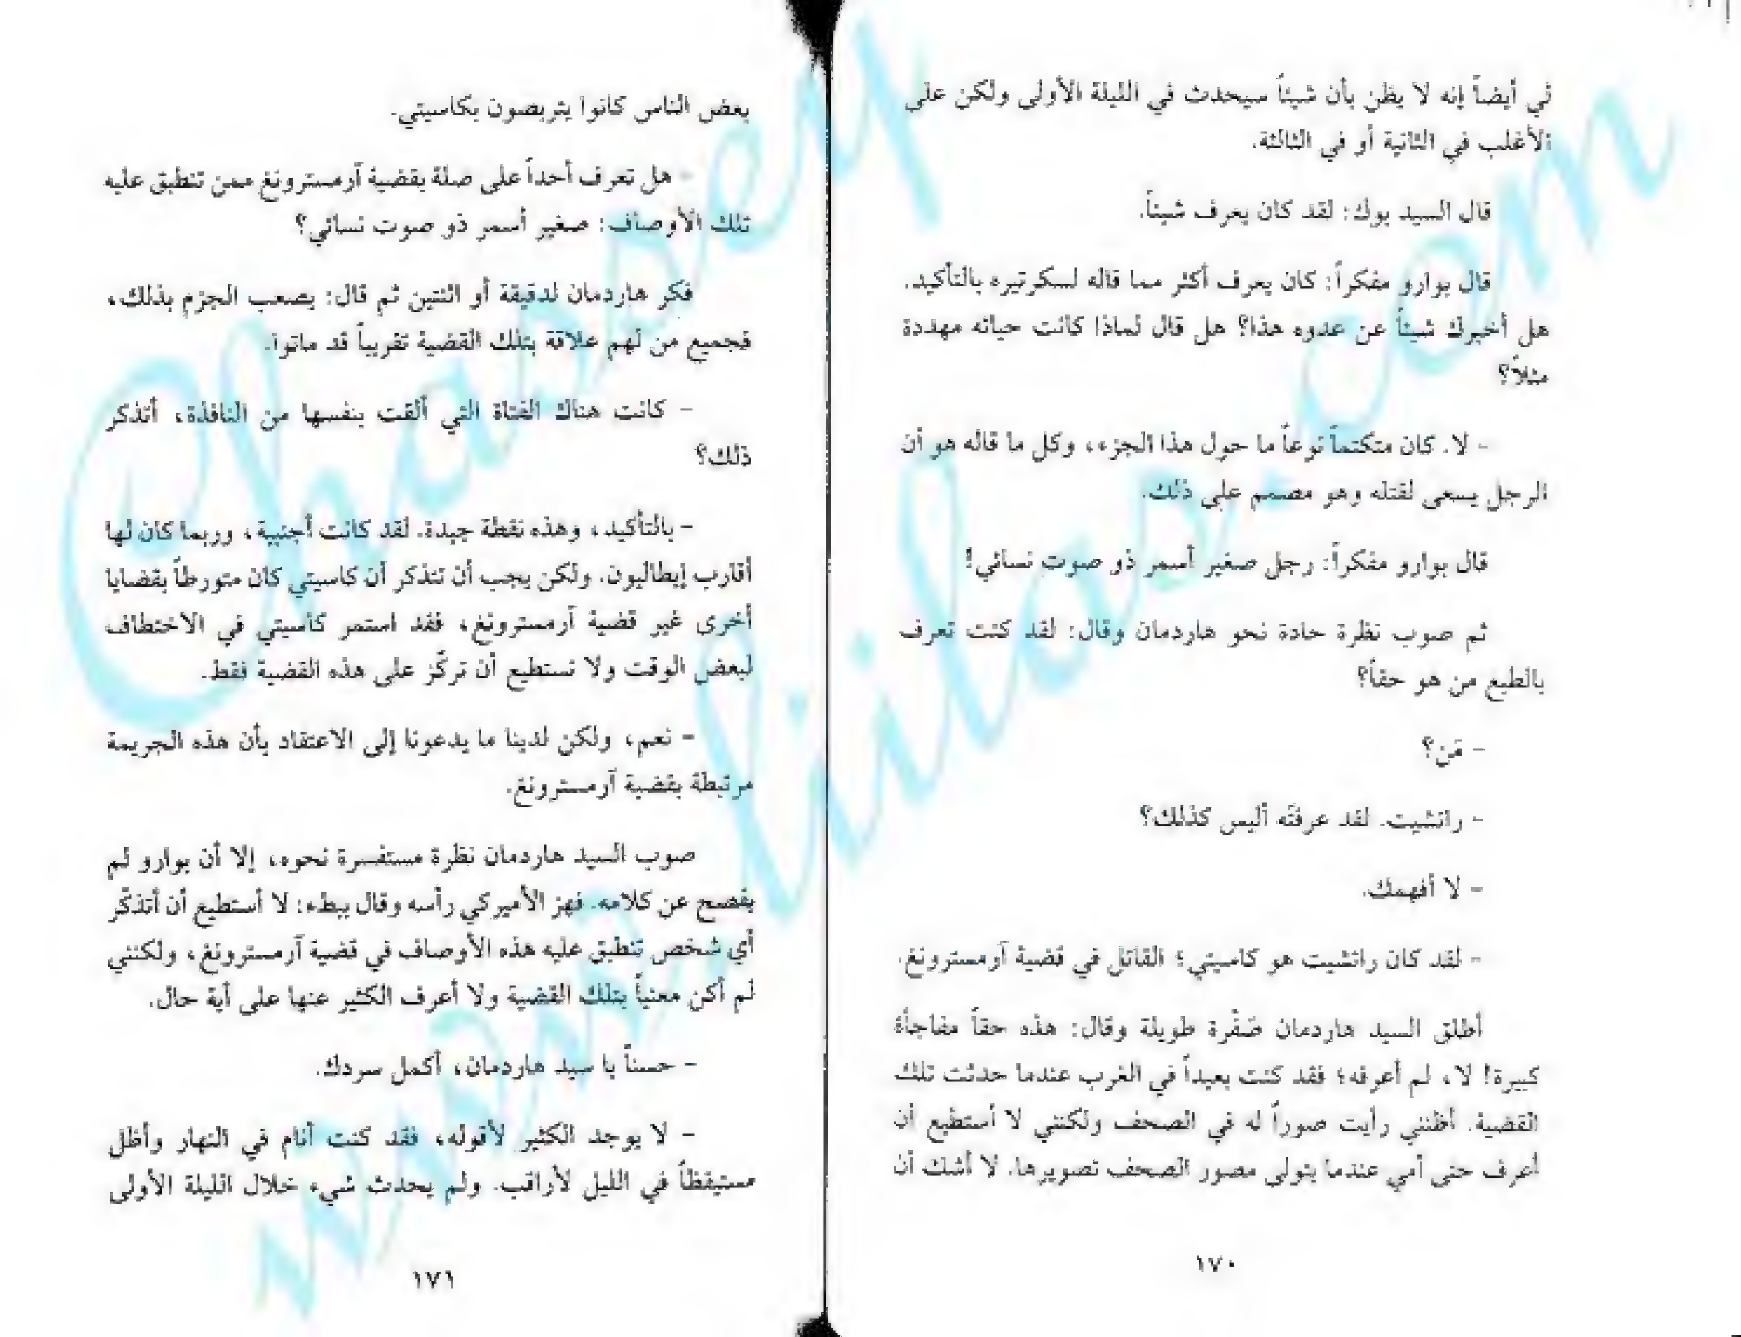 لي أيضاً إنه لا يظن بأن شيئاً سيحدث في الليلة الأولى ولكن على
الأغلب في الثانية أو في الثالثة.
قال السيد بوك: لقد كان يعرف شيئاً.
قال بوارو مفكراً: كان يعرف أكثر مما قاله لسكرتيره بالتأكيد.
هل أخبرك شيئاً عن عدوه هذا؟ هل قال لماذا كانت حياته مهددة
مثلاً؟
- لا. كان متكتماً نوعاً ما حول هذا الجزء، وكل ما قاله هو أن
الرجل يسعى لقتله وهو مصمم على ذلك.
قال بوارو مفكراً: رجل صغير أسمر ذو صوت نسائي!
ثم صوب نظرة حادة نحو هاردمان وقال: لقد كنت تعرف
بالطبع من هو حقاً؟
- مَن؟
- راتشيت. لقد عرفتَه أليس كذلك؟
- لا أفهمك.
- لقد كان راتشيت هو كاسيتي؛ القاتل في قضية آرمسترونغ.
أطلق السيد هاردمان صَفْرة طويلة وقال: هذه حقاً مفاجأة
كبيرة! لا، لم أعرفه؛ فقد كنت بعيداً في الغرب عندما حدثت تلك
القضية. أظنني رأيت صوراً له في الصحف ولكنني لا أستطيع أن
أعرف حتى أمي عندما يتولى مصور الصحف تصويرها. لا أشك أن
١٧٠
بعض الناس كانوا يتربصون بكاسيتي.
- هل تعرف أحداً على صلة بقضية آرمسترونغ ممن تنطبق عليه
تلك الأوصاف: صغير أسمر ذو صوت نسائي؟
فكر هاردمان لدقيقة أو اثنتين ثم قال: يصعب الجزم بذلك،
فجميع من لهم علاقة بتلك القضية تقريباً قد ماتوا.
- كانت هناك الفتاة التي ألقت بنفسها من النافذة، أتذكر
ذلك؟
- بالتأكيد، وهذه نقطة جيدة. لقد كانت أجنبية، وربما كان لها
أقارب إيطاليون. ولكن يجب أن تتذكر أن كاسيتي كان متورطاً بقضايا
أخرى غير قضية آرمسترونغ، فقد استمر كاسيتي في الاختطاف
لبعض الوقت ولا تستطيع أن تركّز على هذه القضية فقط.
- نعم، ولكن لدينا ما يدعونا إلى الاعتقاد بأن هذه الجريمة
مرتبطة بقضية آرمسترونغ.
صوب السيد هاردمان نظرة مستفسرة نحوه، إلا أن بوارو لم
يفصح عن كلامه. فهز الأميركي رأسه وقال ببطء: لا أستطيع أن أتذكّر
أي شخص تنطبق عليه هذه الأوصاف في قضية آرمسترونغ، ولكنني
لم أكن معنياً بتلك القضية ولا أعرف الكثير عنها على أية حال.
- حسناً يا سيد هاردمان، أكمل سردك.
- لا يوجد الكثير لأقوله، فقد كنت أنام في النهار وأظل
مستيقظاً في الليل لأراقب. ولم يحدث شيء خلال الليلة الأولى
١٧١